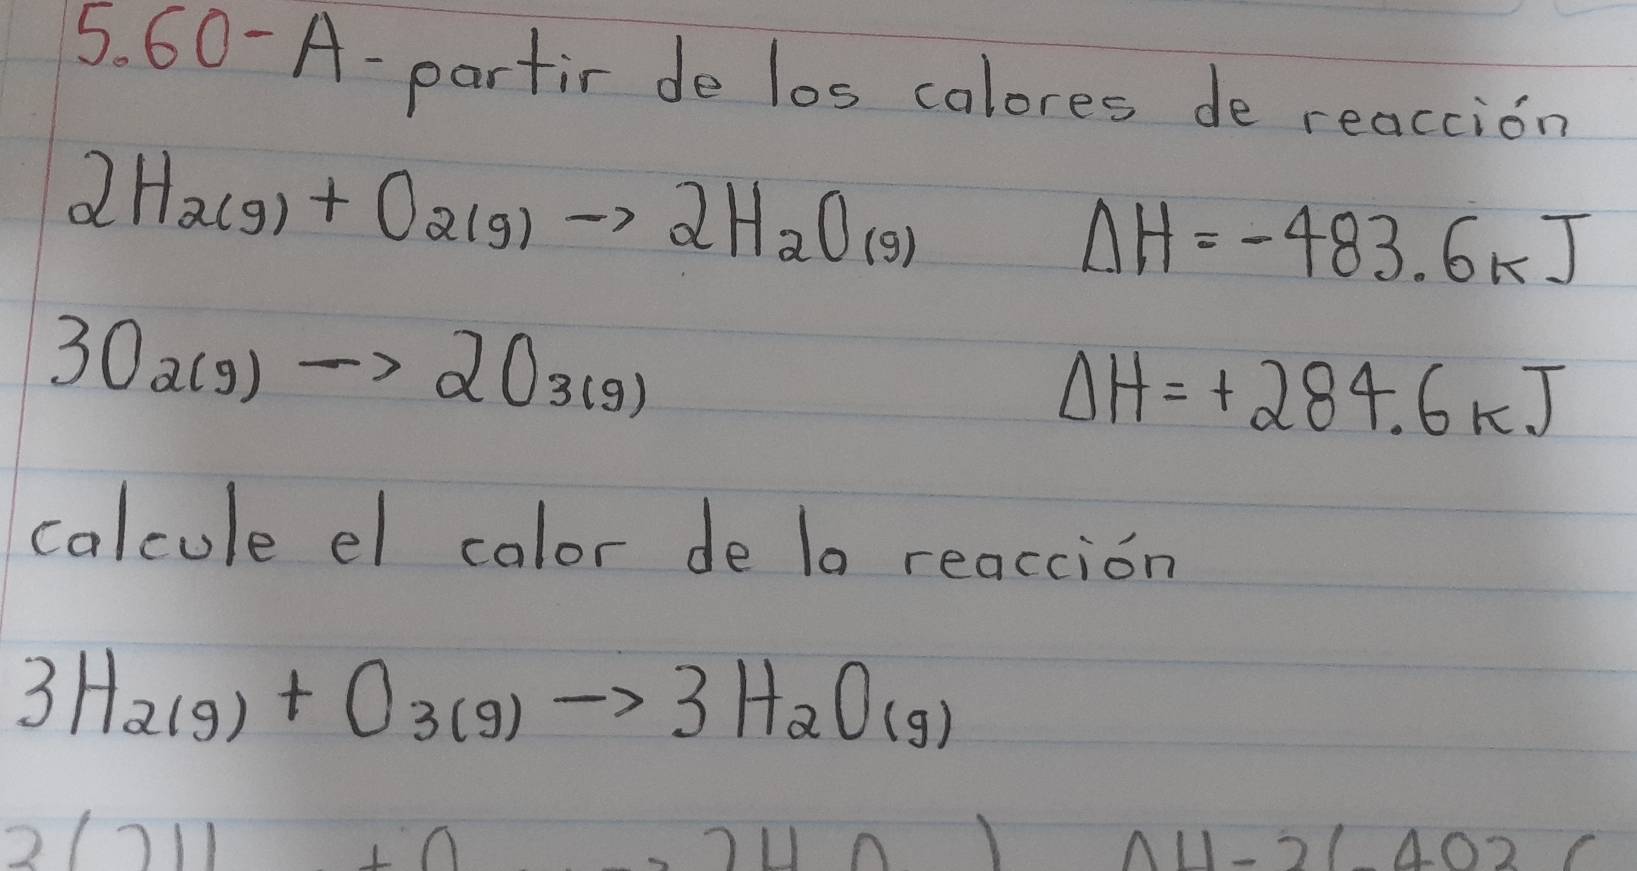 5.60-A-partir de los calores de reacción
2H2(g) + O2(g) -> 2H2O(g) ΔH = -483.6 KJ
3O2(g) -> 2O3(g) ΔH = +284.6 KJ
calcule el calor de la reacción
3H2(g) + O3(g) -> 3H2O(g)